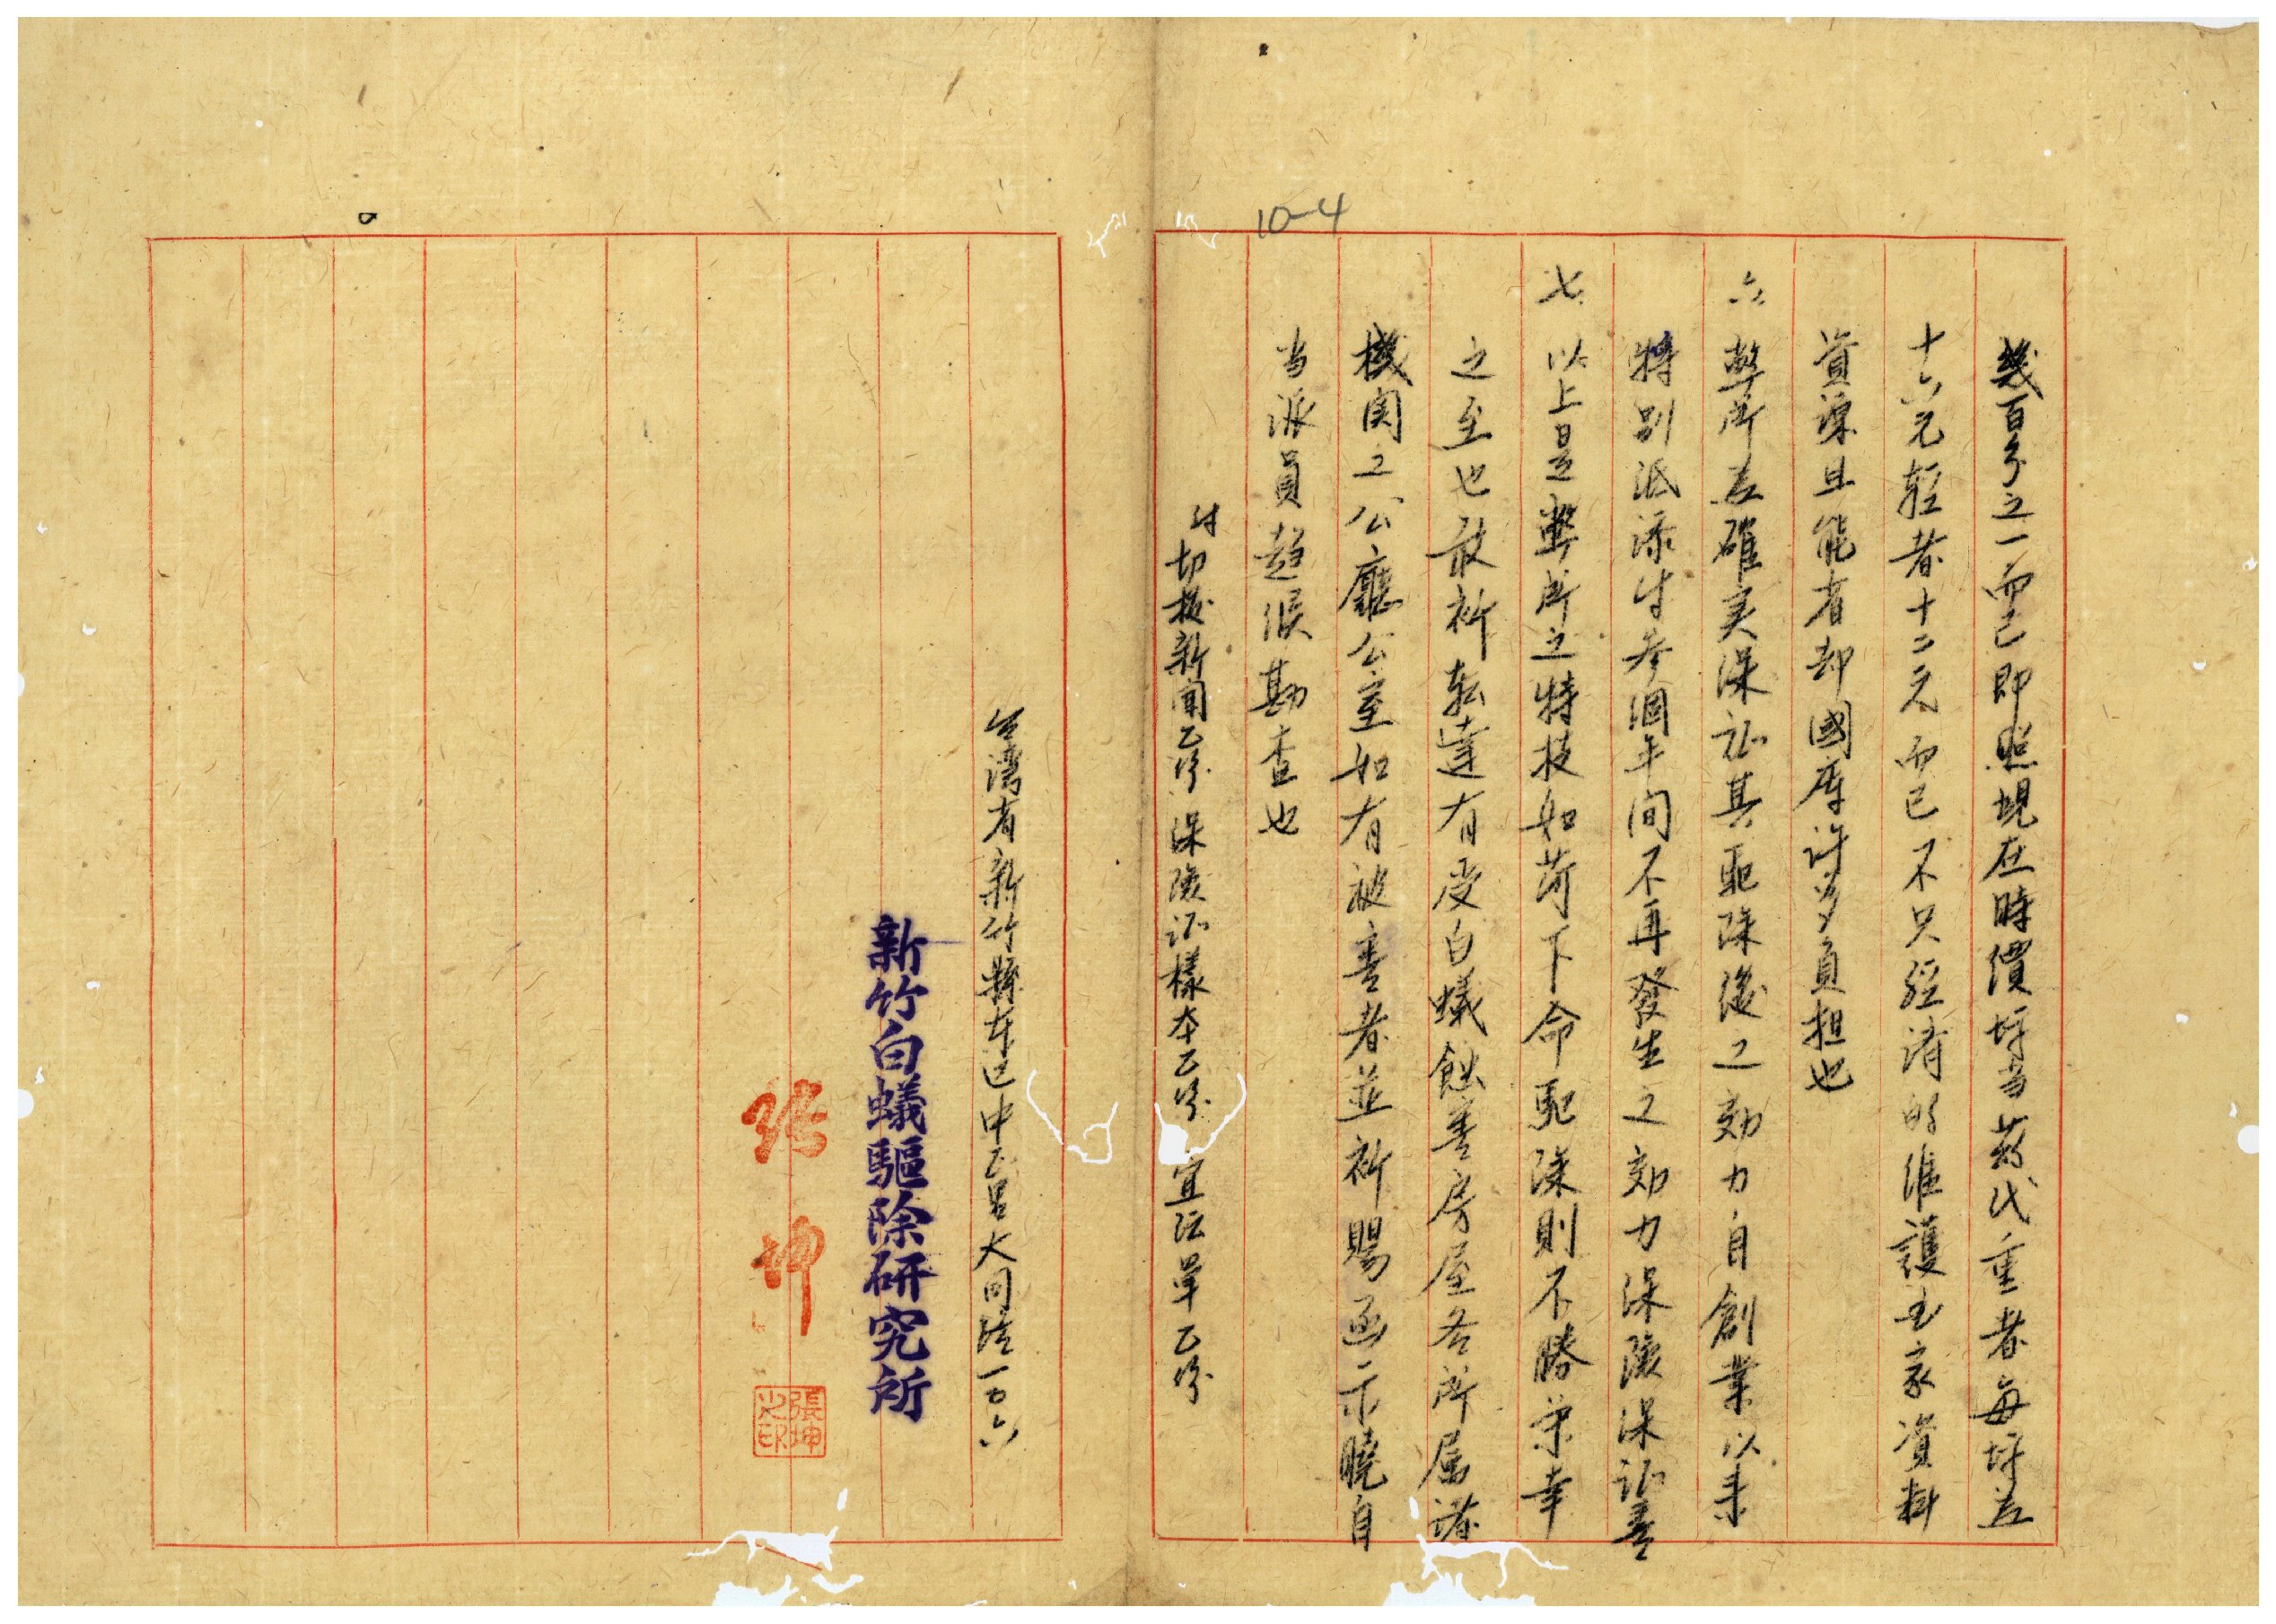 10-4
幾百分之一而已即照現在時價坪当药代重者每坪為
十六元輕者十二元而已不只経済的維護国家資料
資源且能省却國庫许多負担也
六、弊所為確実保证其駆除後之効力自創業以来
特別派添付参個年间不再發生之効力保険保证書
七、以上是弊所之特技如苛下命駆除則不勝荣幸
之至也敢祈転達有受白蟻蝕害房屋各所属诸
機関之公廳公室如有被害者並祈賜函示曉自
当派員趋候勘查也
付切抜新聞乙份 保険证樣本乙份 宣伝單乙份
台湾省新竹縣东区中正里大同路一〇六
新竹白蟻驅除研究所
张坤
張坤之印